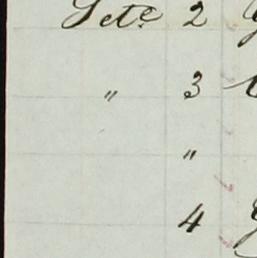 Sete 2
" 3
"
4